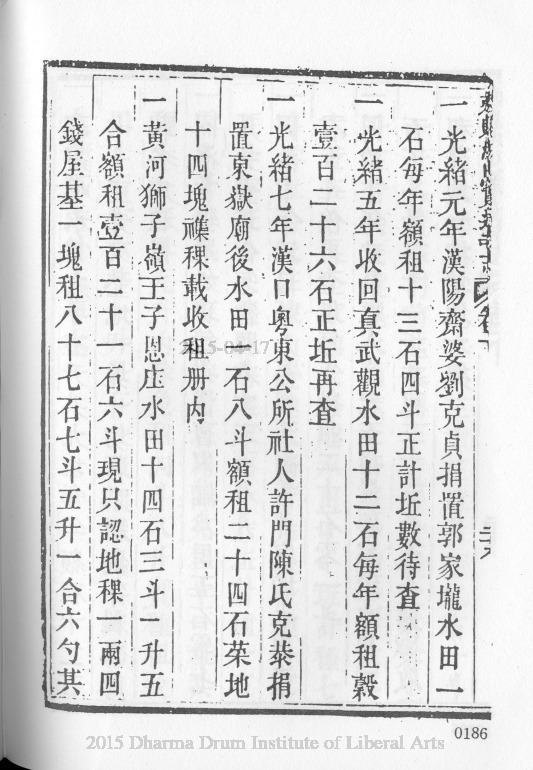 一光緒元年漢陽齋婆劉克貞捐置郭家壠水田一
石每年額租十三石四斗正計坵數待查
一光緒五年收回真武觀水田十二石每年額租穀
壹百二十六石正坵再查
一光緒七年漢口粵東公所社人許門陳氏克恭捐
置東嶽廟後水田 石八斗額租二十四石菜地
十四塊襍稞載收租册内
一黃河獅子嶺王子恩庄水田十四石三斗一升五
合額租壹百二十一石六斗現只認地稞一兩四
錢屋基一塊租八十七石七斗五升一合六勺其
2015-04-17
0186
2015 Dharma Drum Institute of Liberal Arts